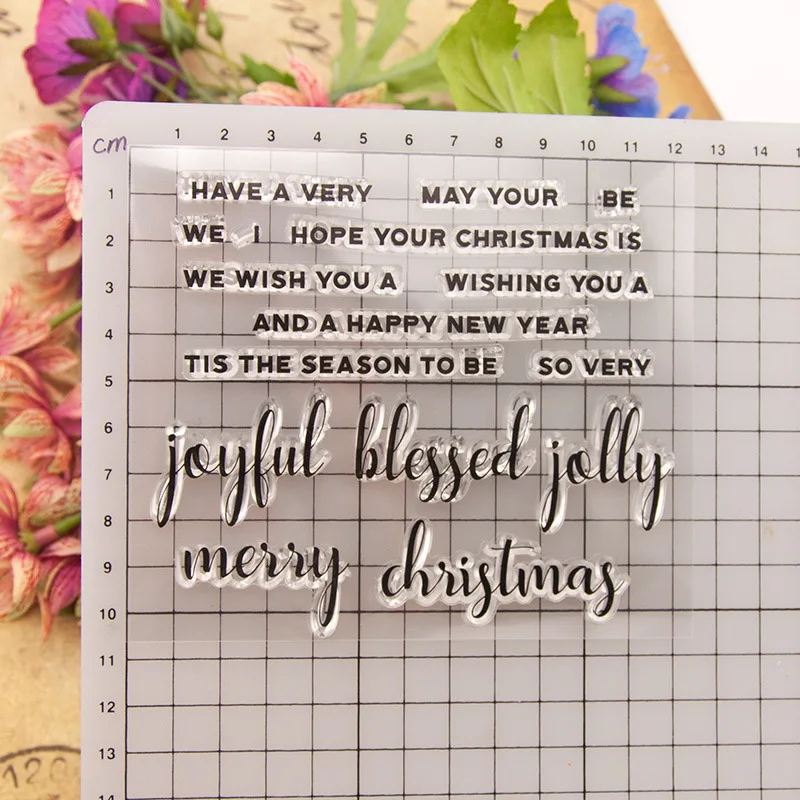 cm
1 2 3 4 5 6 7 8 9 10 11 12 13 14
1
HAVE A VERY MAY YOUR BE
2
WE I HOPE YOUR CHRISTMAS IS
3
WE WISH YOU A WISHING YOU A
4
AND A HAPPY NEW YEAR
TIS THE SEASON TO BE SO VERY
5
6
joyful blessed jolly
7
8
merry christmas
9
10
11
12
13
14
120